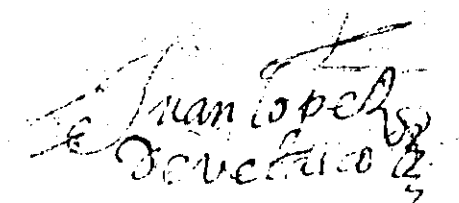 Juan Lopez
De velasco